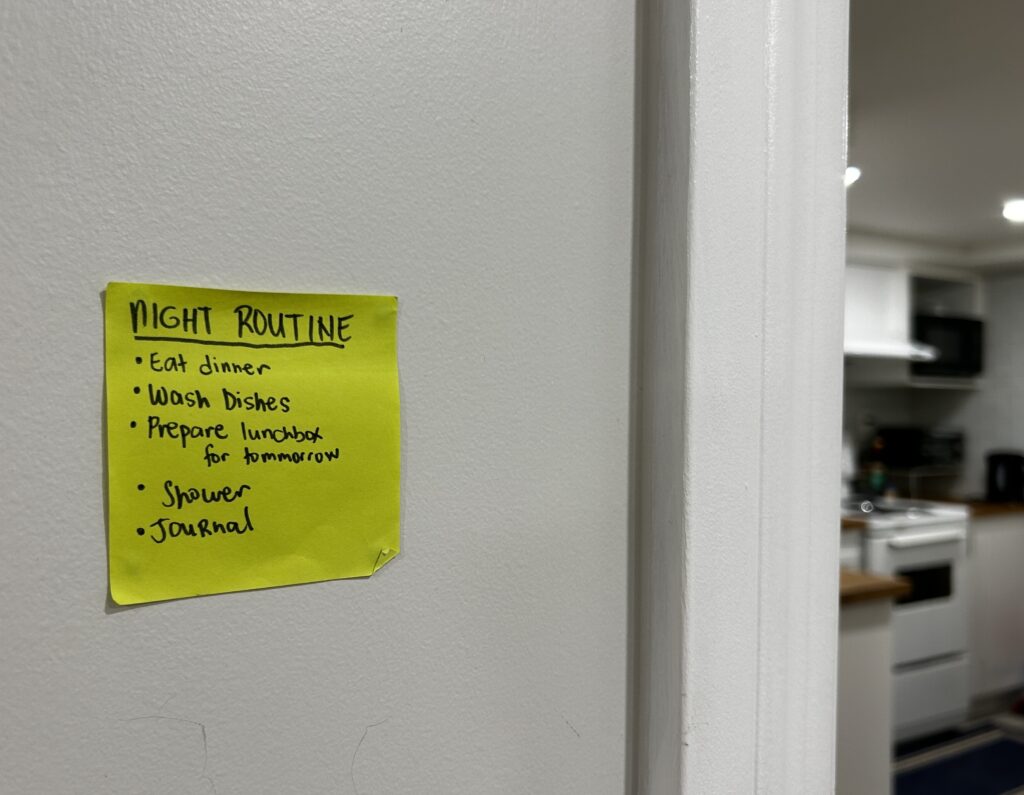 NIGHT ROUTINE
• Eat dinner
• Wash Dishes
• Prepare lunchbox
for tommorrow
• Shower
• Journal